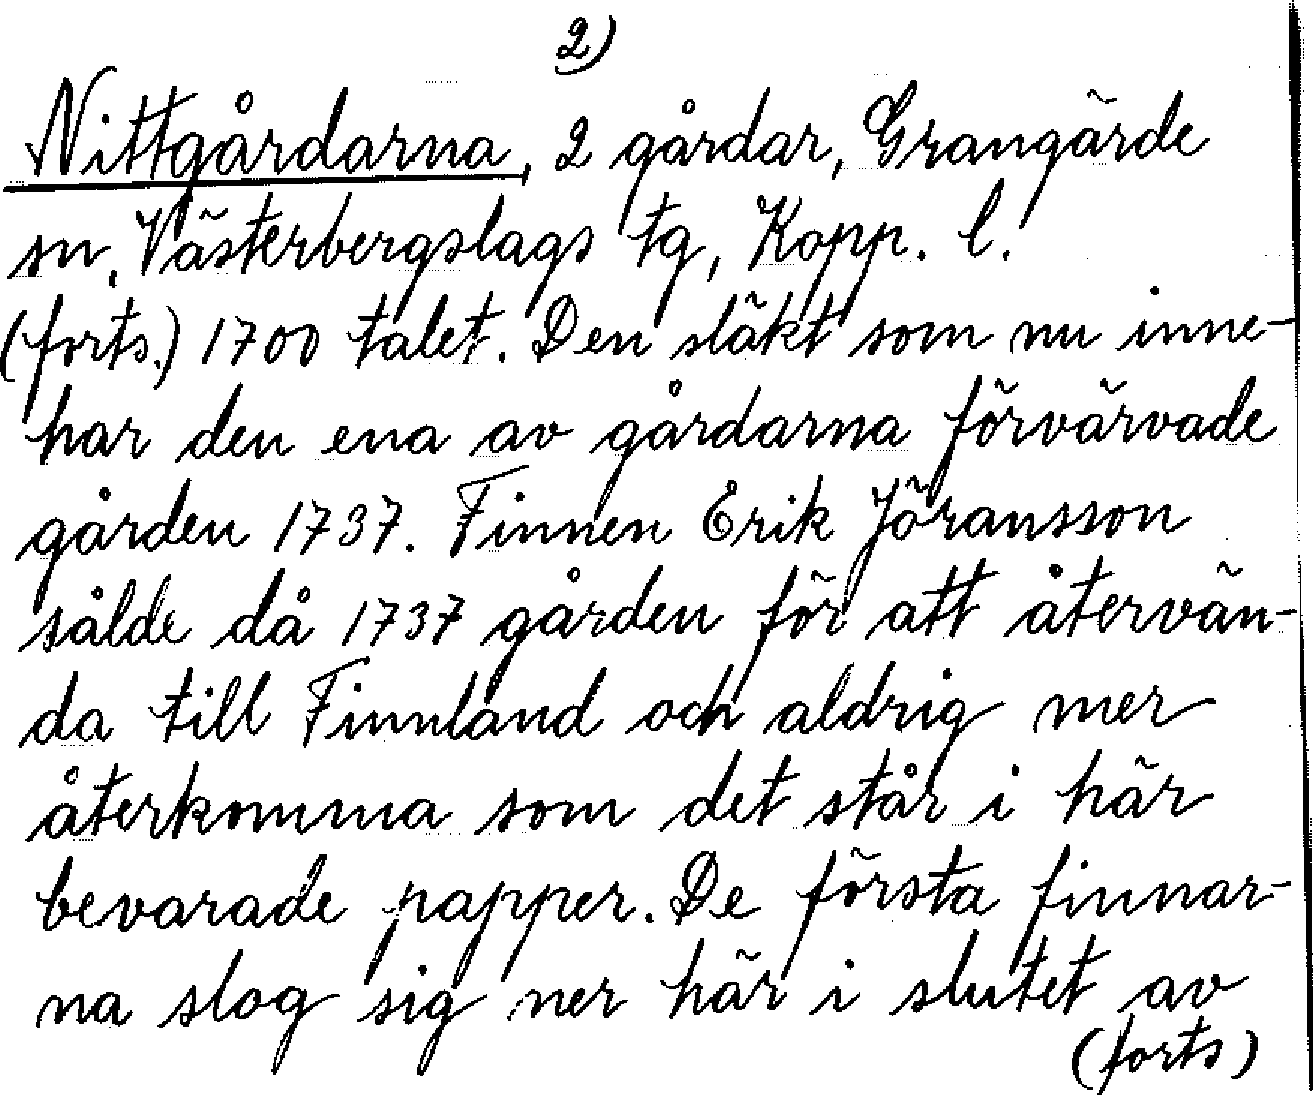 2)
Nittgårdarna, 2 gårdar, Grangärde
sn. Västerbergslags tg, Kopp. l.
(forts.) 1700 talet. Den släkt som nu inne-
har den ena av gårdarna förvärvade
gården 1737. Finnen Erik Jöransson
sålde då 1737 gården för att återvän-
da till Finnland och aldrig mer
återkomma som det står i här
bevarade papper. De första finnar-
na slog sig ner här i slutet av
(forts)